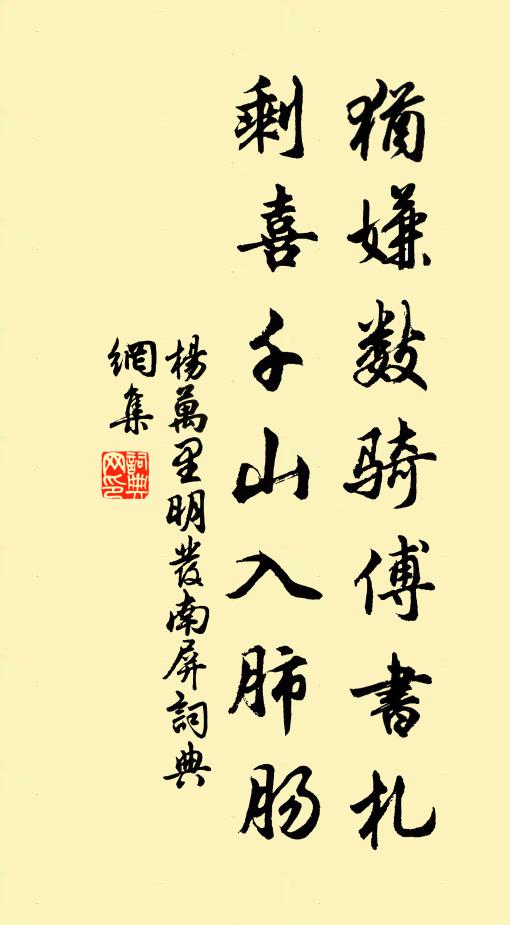 猶嫌數騎傅書札
剩喜千山入肺肠
楊萬里明發南屏詞典
網集
詞典網印